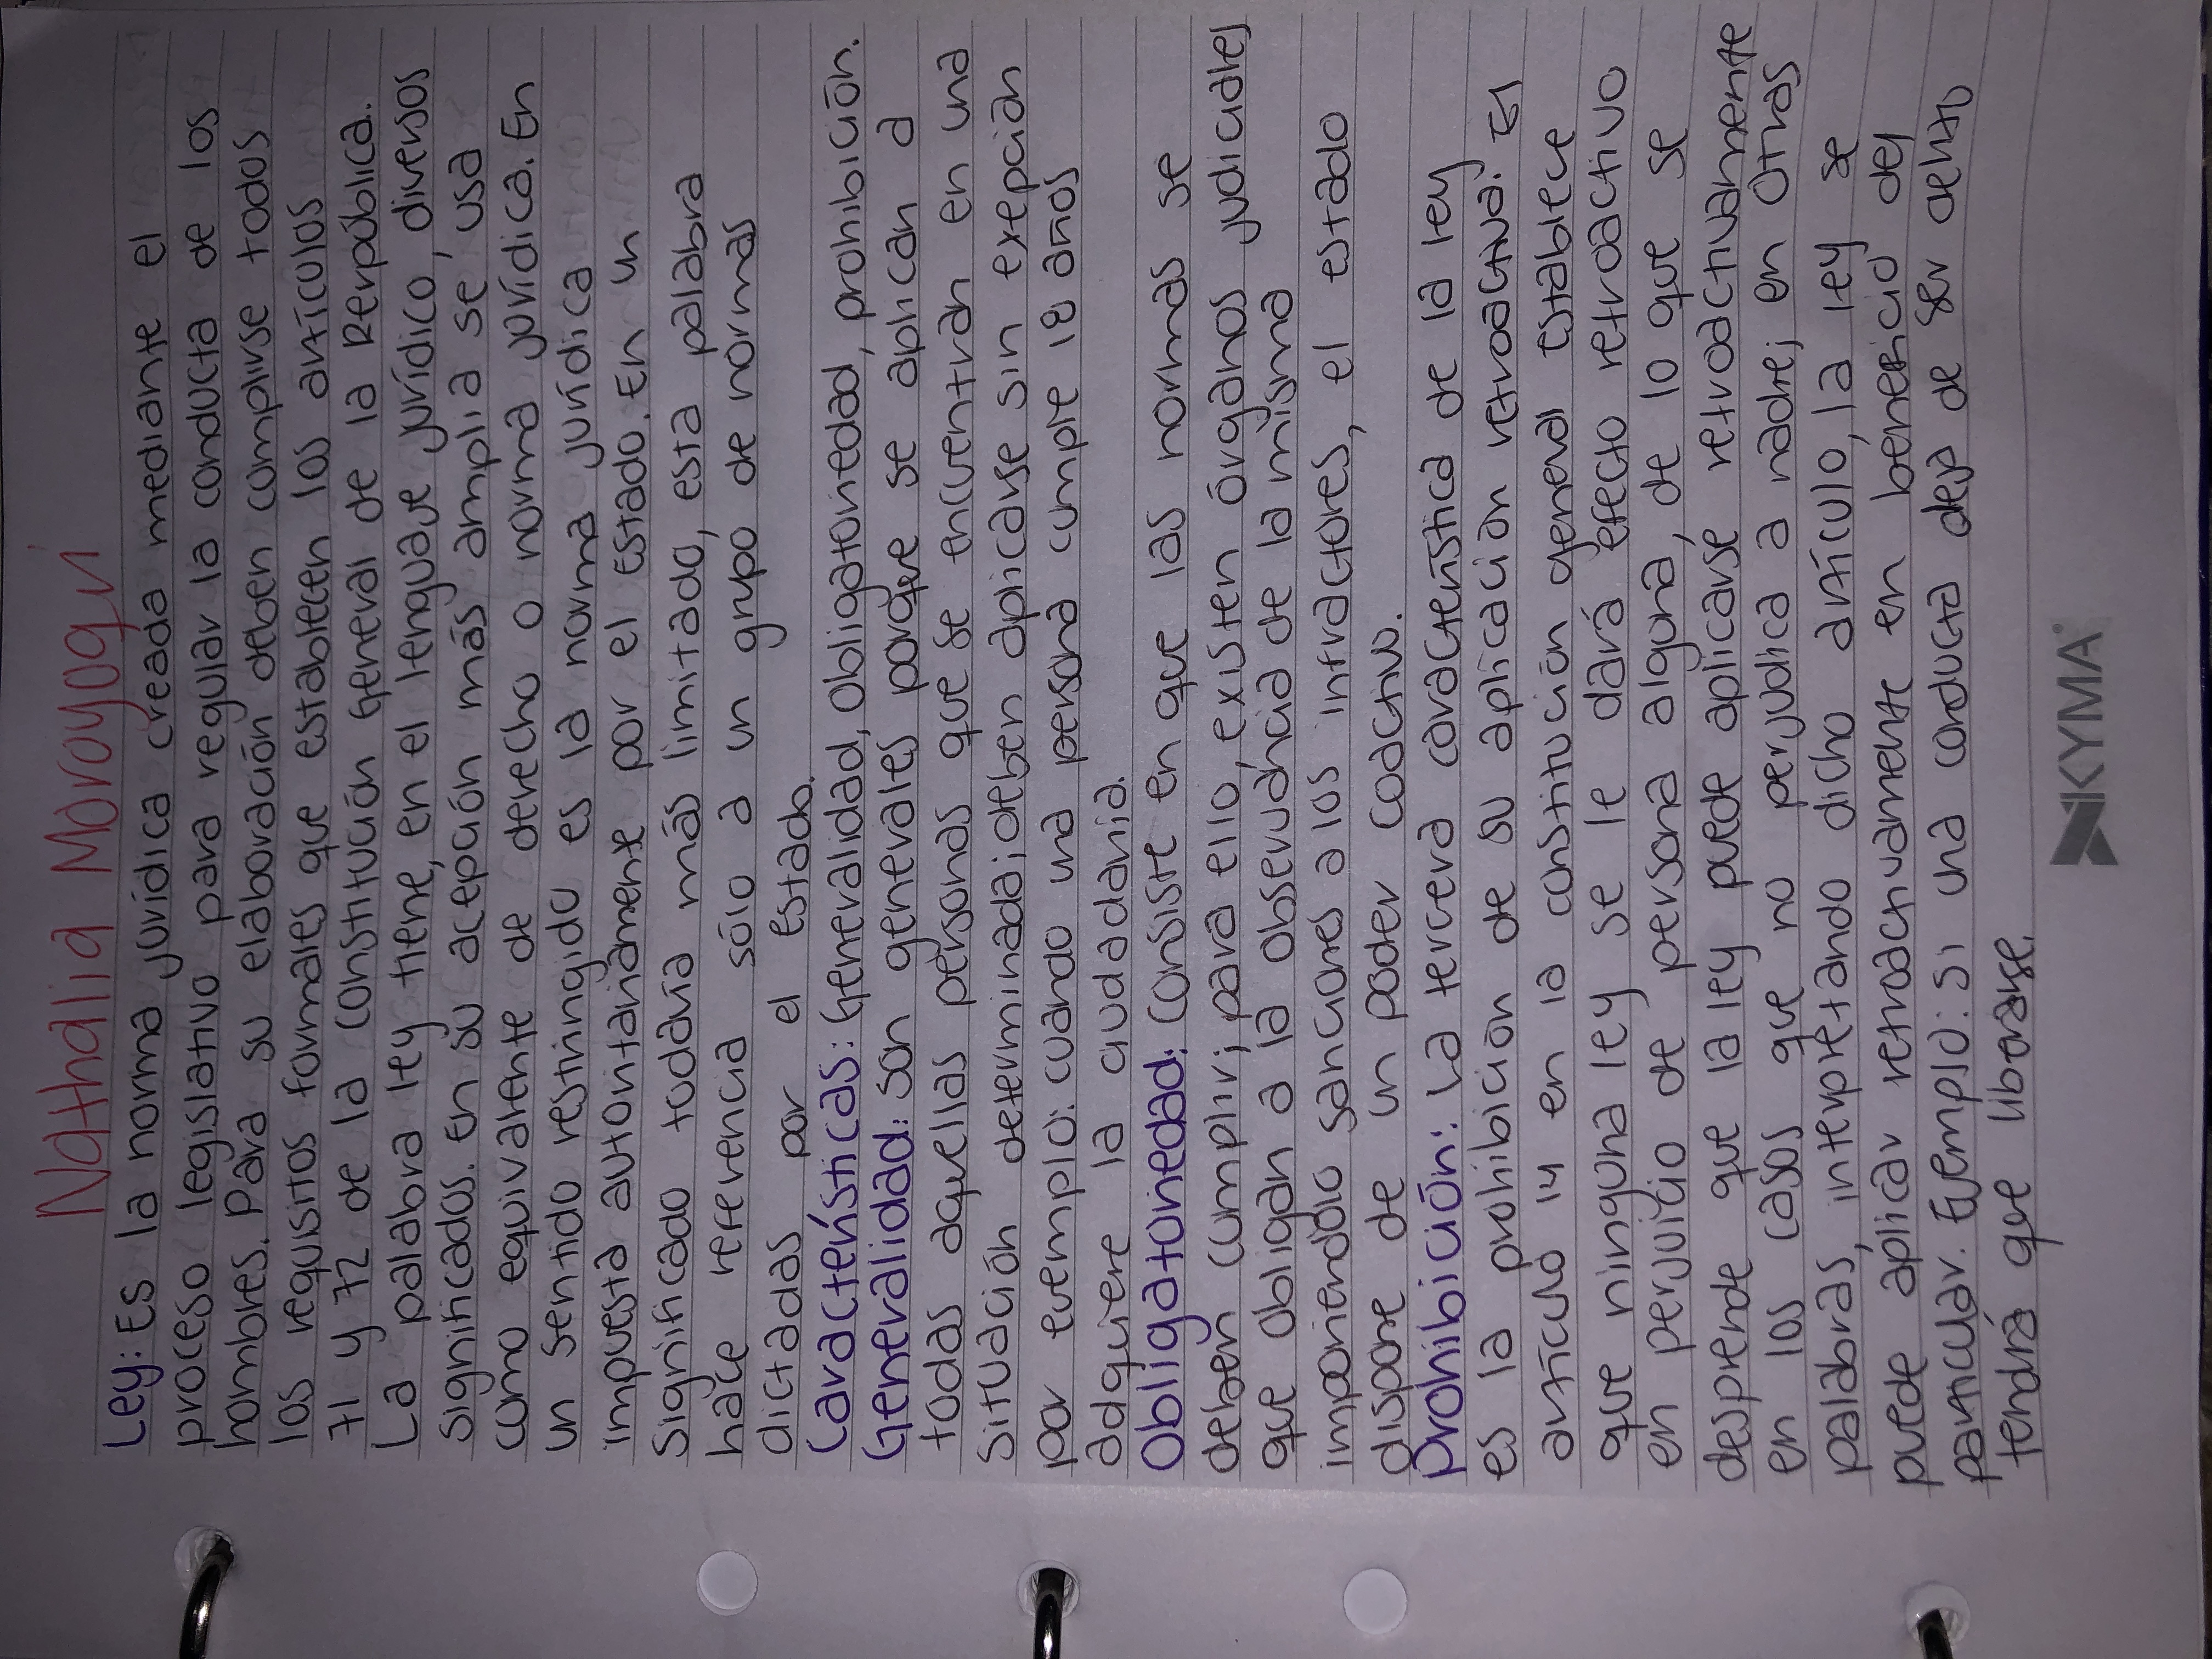 Nathalia Moroyoqui
Ley: Es la norma jurídica creada mediante el
proceso legislativo para regular la conducta de los
hombres. Para su elaboración deben complirse todos
los requisitos formales que establecen los artículos
71 y 72 de la Constitución General de la República.
La palabra ley tiene, en el lenguaje jurídico, diversos
significados. En su acepción más amplia se, usa
como equivalente de derecho o norma jurídica. En
un sentido restringido es la norma jurídica
impuesta autoritariamente por el estado. En un
significado todavía más limitado, esta palabra
hace referencia sólo a un grupo de normas
dictadas por el estado.
Características: Generalidad, Obligatoriedad, prohibición.
Generalidad: son generales porque se aplican a
todas aquellas personas que se encuentran en una
situación determinada; deben aplicarse sin expeción
por ejemplo: cuando una persona cumple 18 años
adquiere la ciudadania.
Obligatoriedad: Consiste en que las normas se
deben cumplir; para ello, existen órganos judiciales
que obligan a la observancia de la misma
imponiendo sanciones a los infractores, el estado
dispone de un poder coactivo.
prohibición: La tercera característica de la ley
es la prohibición de su aplicación retroactiva. El
artículo 14 en la constitución general establece
que ninguna ley se le dará efecto retroactivo
en perjuicio de persona alguna, de lo que se
desprende que la ley puede aplicarse retroactivamente
en los casos que no perjudica a nadie; en otras
palabras, interpretando dicho artículo, la ley se
puede aplicar retroactivamente en beneficio del
particular. Ejemplo: si una conducta deja de ser delito
tendrá que liberarse.
KYMA